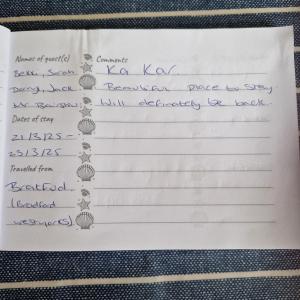 Names of guest(s)
Bekki, Sarah
Darryl, Jack
Mr
Dates of stay
21/3/25 -
23/3/25
Travelled from
Bratfud
(Bradford
west yorks)
Comments
Ka Kar
Beautiful place to stay
Will definately be back